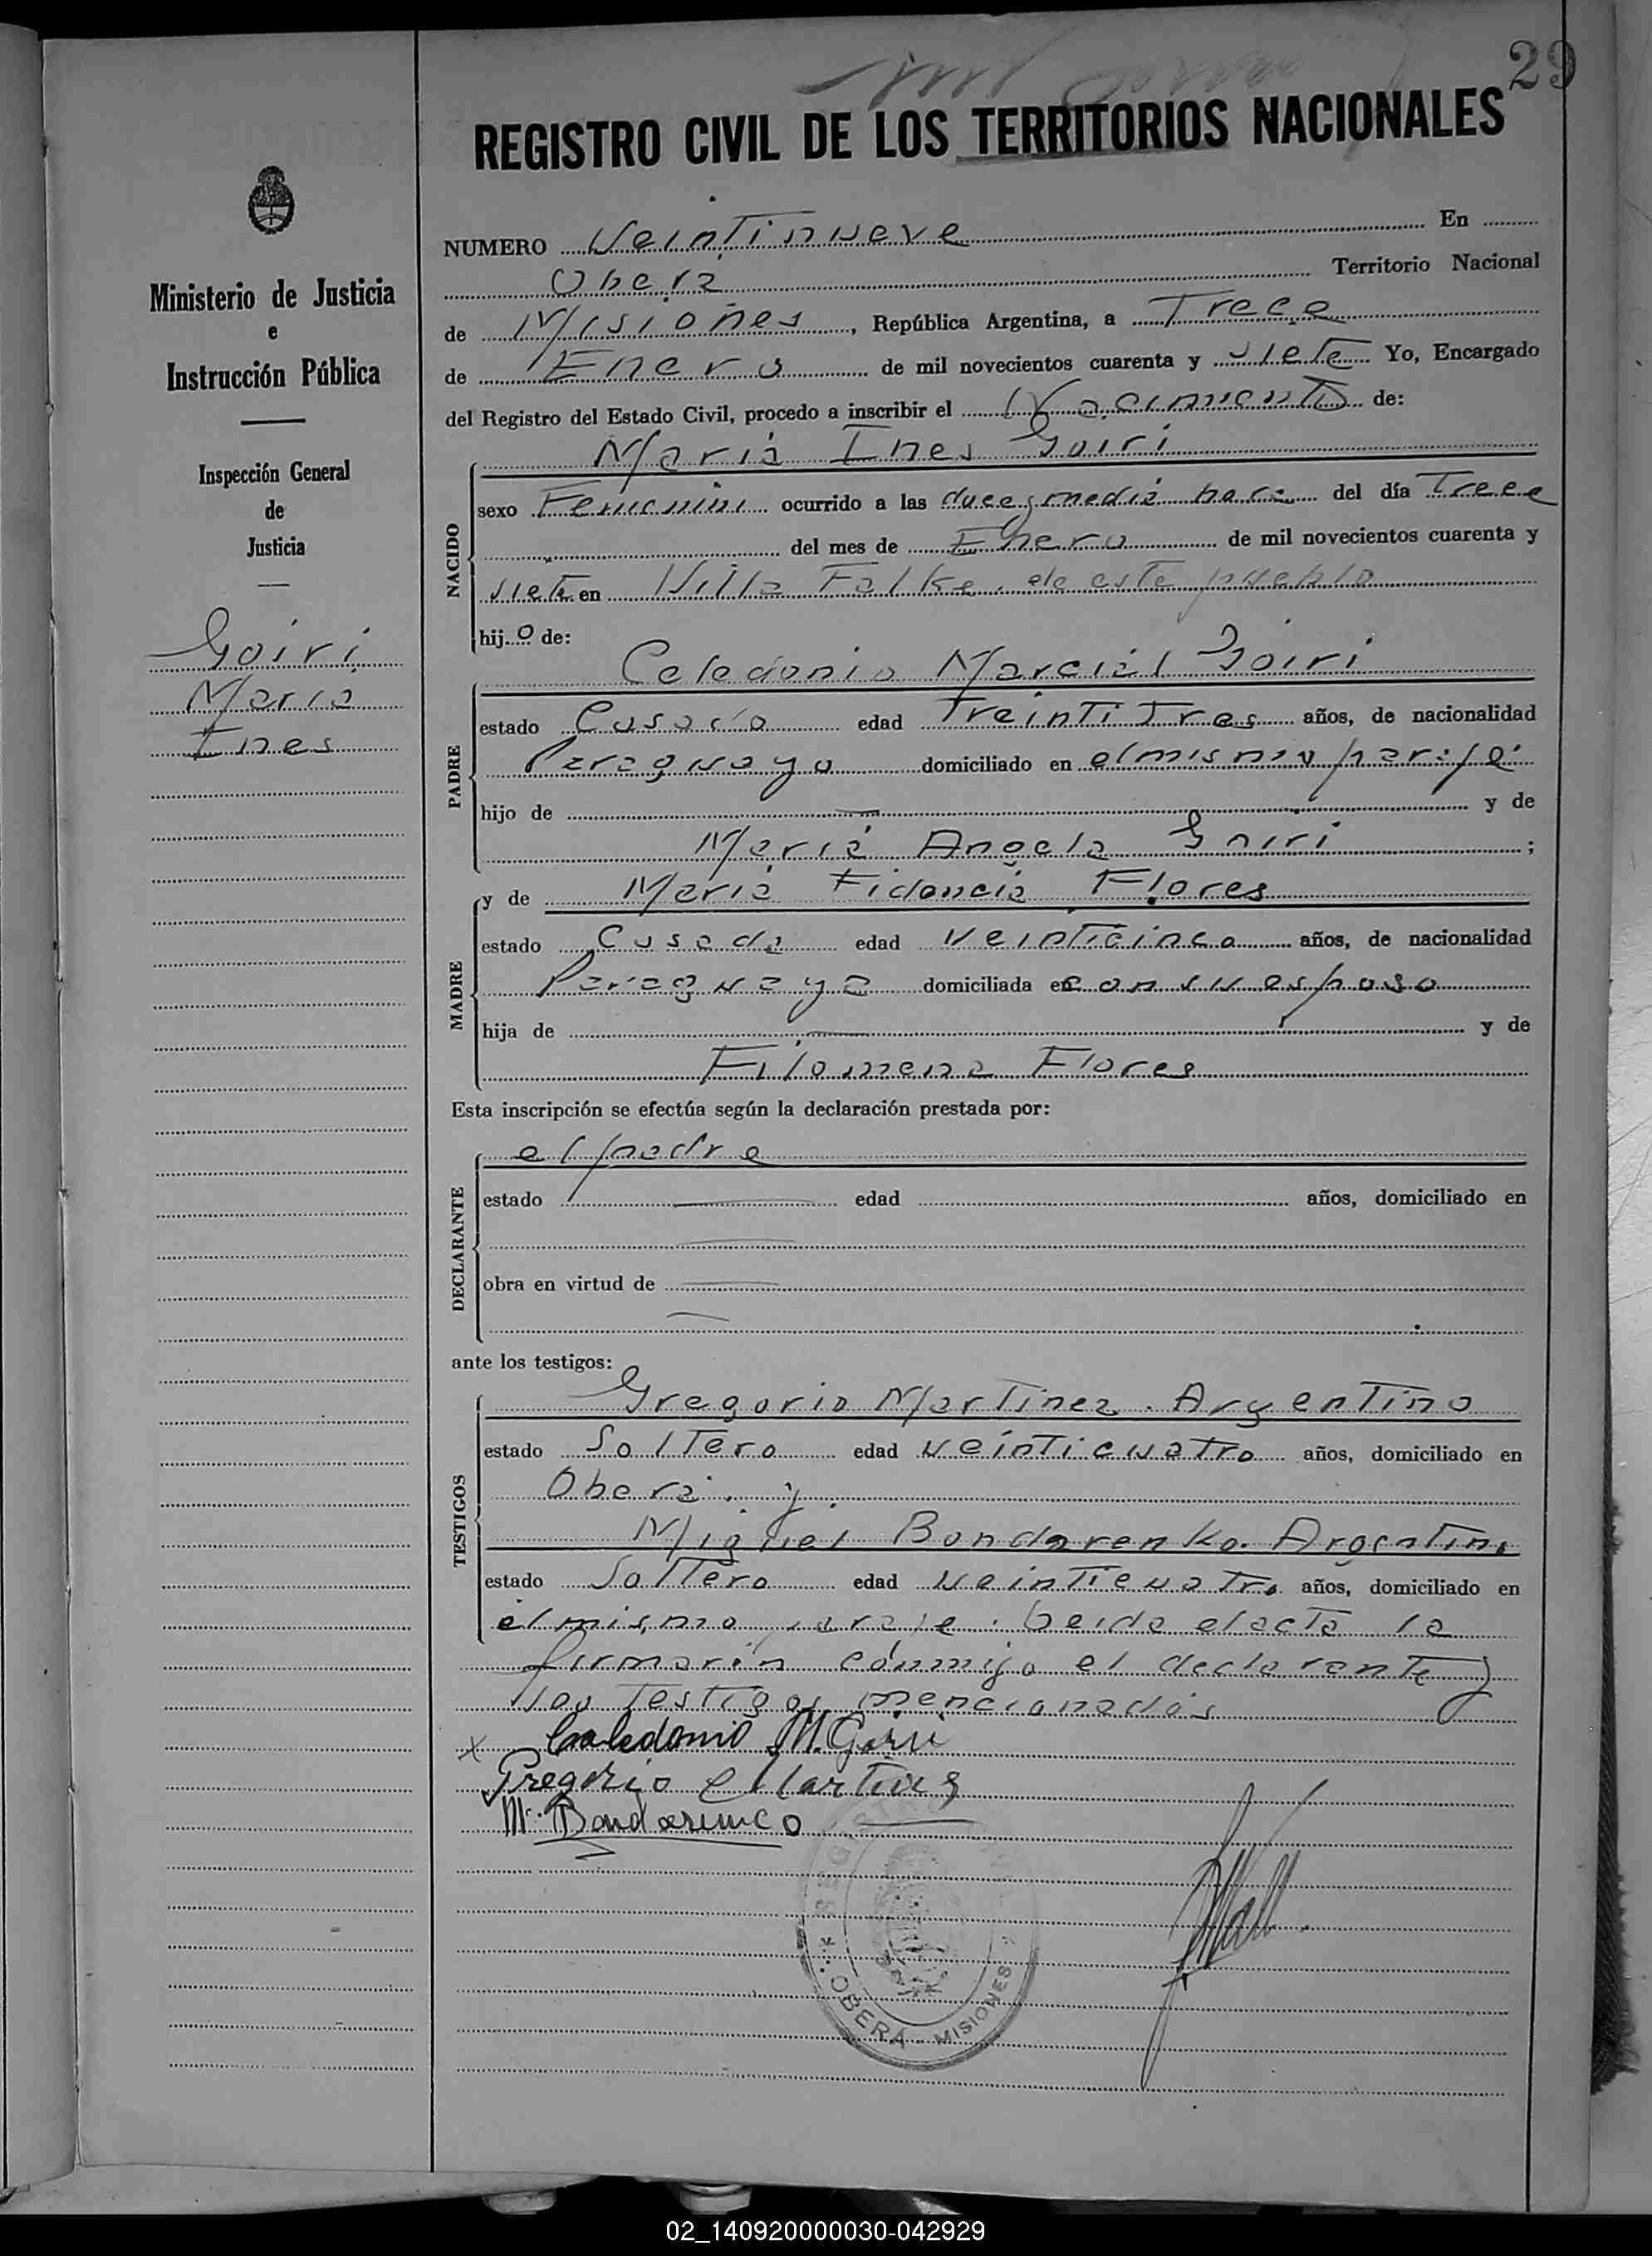 29
REGISTRO CIVIL DE LOS TERRITORIOS NACIONALES
Ministerio de Justicia
e
Instrucción Pública
Inspección General
de
Justicia
Goiri
Maria
Ines
NUMERO Veintinueve En
Oberá Territorio Nacional
de Misiones, República Argentina, a Trece
de Enero de mil novecientos cuarenta y siete Yo, Encargado
del Registro del Estado Civil, procedo a inscribir el Nacimiento de:
Maria Ines Goiri
NACIDO
sexo Femenino ocurrido a las doce y media hora del día Trece
del mes de Enero de mil novecientos cuarenta y
siete en Villa Falke, de este pueblo
hijo de:
Celedonio Marcial Goiri
PADRE
estado Casado edad Treinti Tres años, de nacionalidad
Paraguayo domiciliado en el mismo paraje
hijo de — y de
Maria Angela Goiri;
y de Maria Fidencia Flores
MADRE
estado Casada edad veinticinco años, de nacionalidad
Paraguaya domiciliada en con su esposo
hija de — y de
Filomena Flores
Esta inscripción se efectúa según la declaración prestada por:
el padre
DECLARANTE
estado — edad años, domiciliado en
obra en virtud de —
ante los testigos:
Gregorio Martinez. Argentino
TESTIGOS
estado Soltero edad veinticuatro años, domiciliado en
Oberá. y.
Miguel Bondarenko. Argentino
estado Soltero edad veinticuatro años, domiciliado en
el mismo paraje. Leida el acta la
firmarón conmigo el declarante y
los Testigos mencionados
x Celedonio M. Goiri
Gregorio Martinez
M. Bondarenco
OBERÁ - MISIONES
02_140920000030-042929